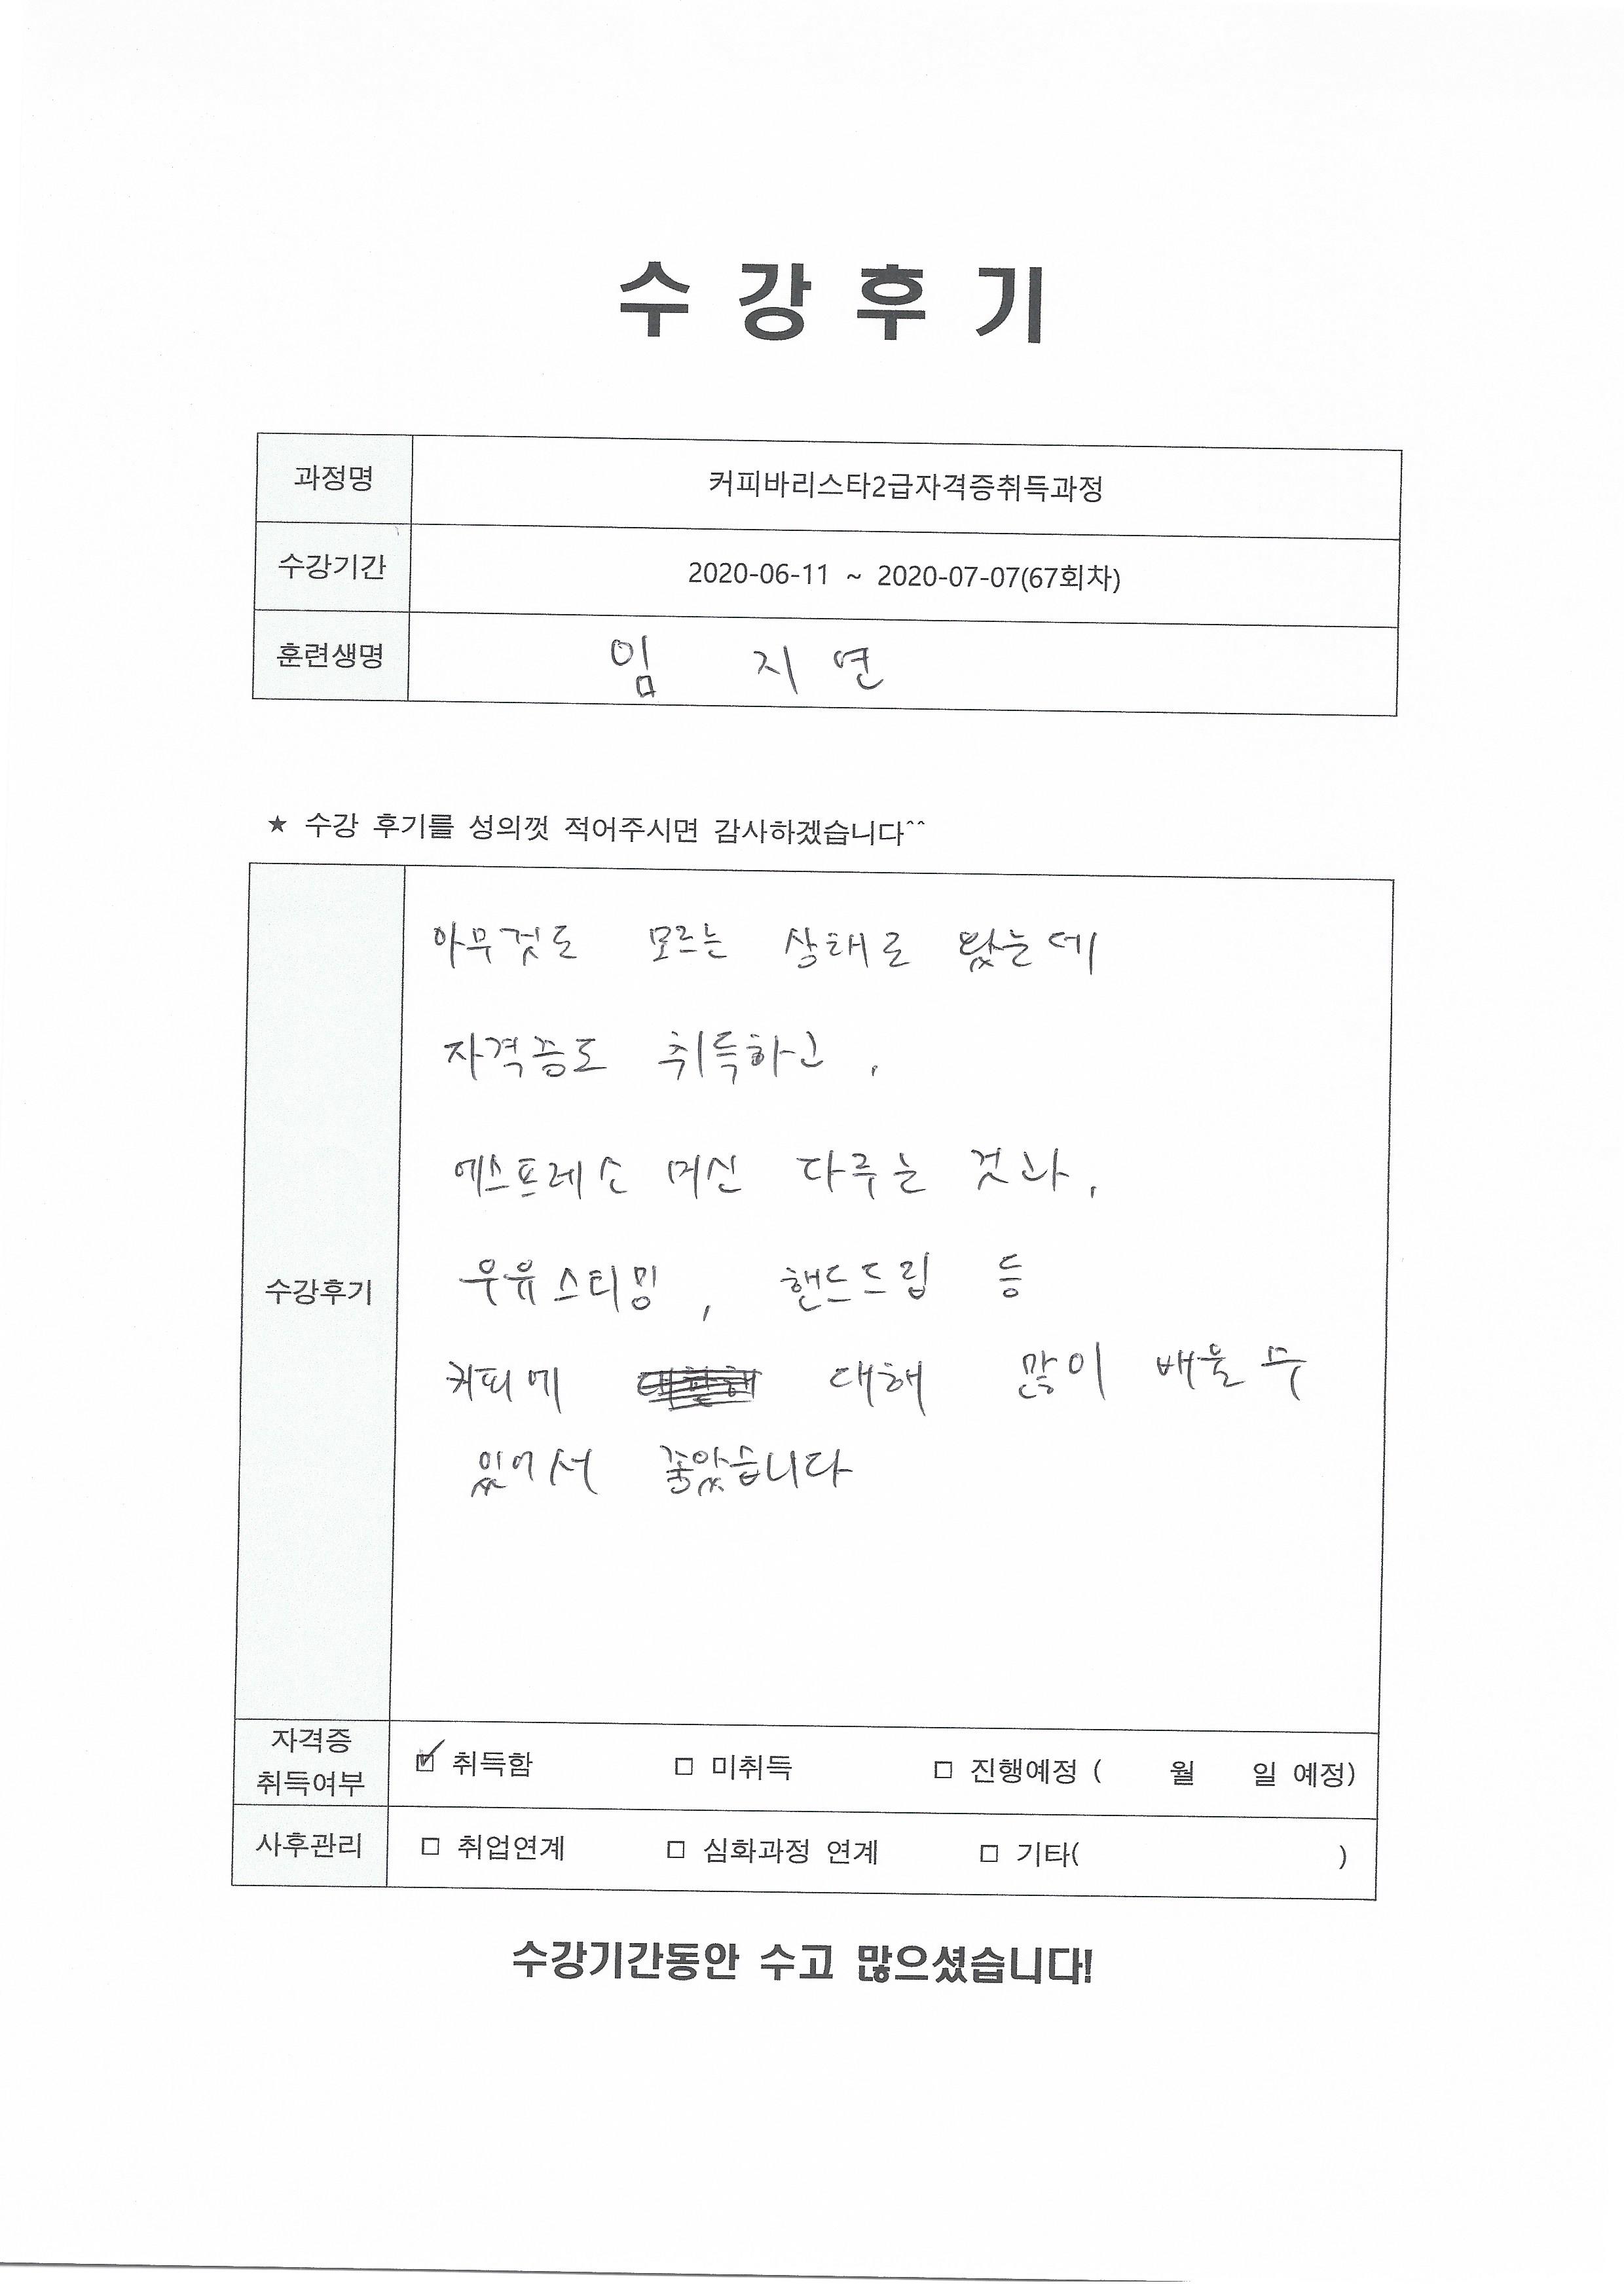 수 강 후 기
과정명 커피바리스타2급자격증취득과정
수강기간 2020-06-11 ~ 2020-07-07(67회차)
훈련생명 임 지 연
★ 수강 후기를 성의껏 적어주시면 감사하겠습니다^^
아무것도 모르는 상태로 왔는데
자격증도 취득하고,
에스프레소 머신 다루는 것과,
우유스티밍, 핸드드립 등
수강후기
커피에 대해 많이 배울 수
있어서 좋았습니다
자격증
취득여부
☑ 취득함 □ 미취득 □ 진행예정 ( 월 일 예정)
사후관리 □ 취업연계 □ 심화과정 연계 □ 기타( )
수강기간동안 수고 많으셨습니다!